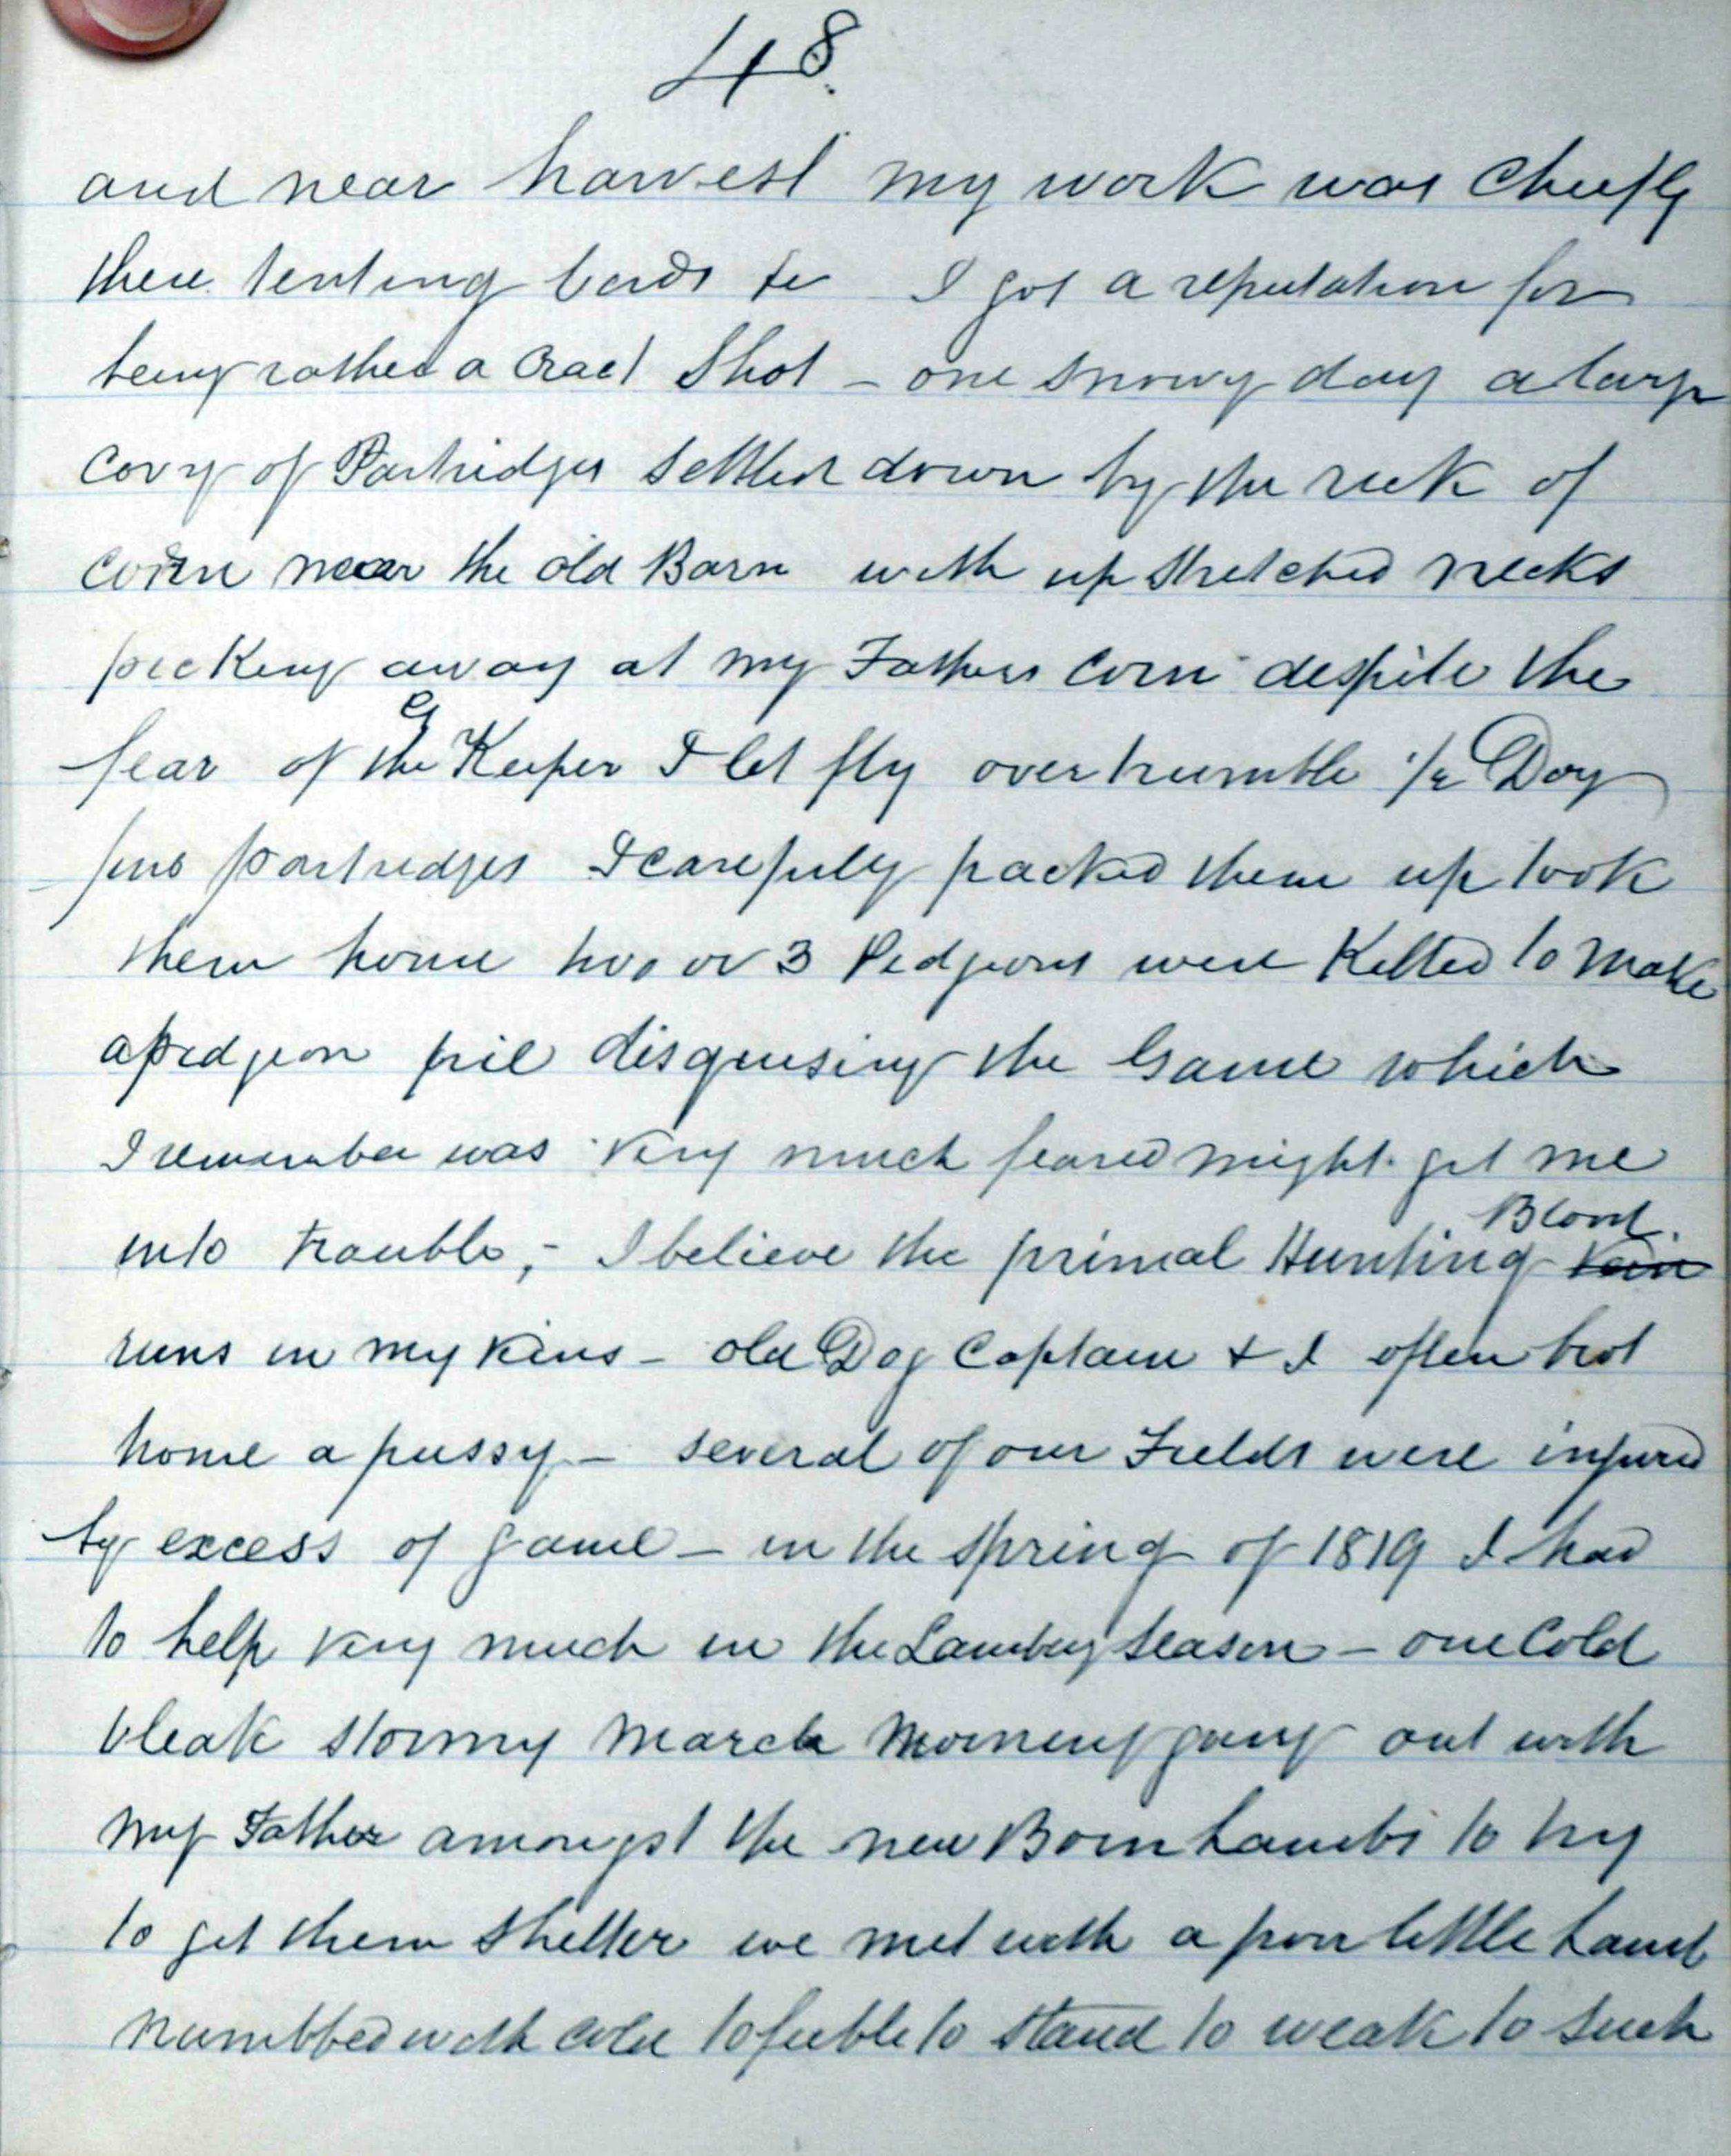 48.
and near harvest my work was Cheifly
there tenting birds &c I got a reputation for
being rather a Crack Shot - one snowy day a large
Covy of Partridges settled down by the rick of
corn near the old Barn with up stretched necks
picking away at my Fathers Corn despite the
fear of the G Keeper I let fly over trumble 1/2 Doz
fine partridges I carefully packed them up took
them home two or 3 Pidgeons were Killed to make
a pidgeon pie disguising the Game which
I remember was very much feared might get me
into trouble, - I believe the primal Hunting Blood vein
runs in my Veins - old Dog Captain & I often brot
home a pussy - several of our Fields were injured
by excess of game - in the spring of 1819 I had
to help very much in the Lambing Season - one Cold
bleak stormy march morning going out with
my Father amongst the new Born Lambs to try
to get them shelter we met with a poor little Lamb
numbbed with cold to feeble to stand to weak to suck